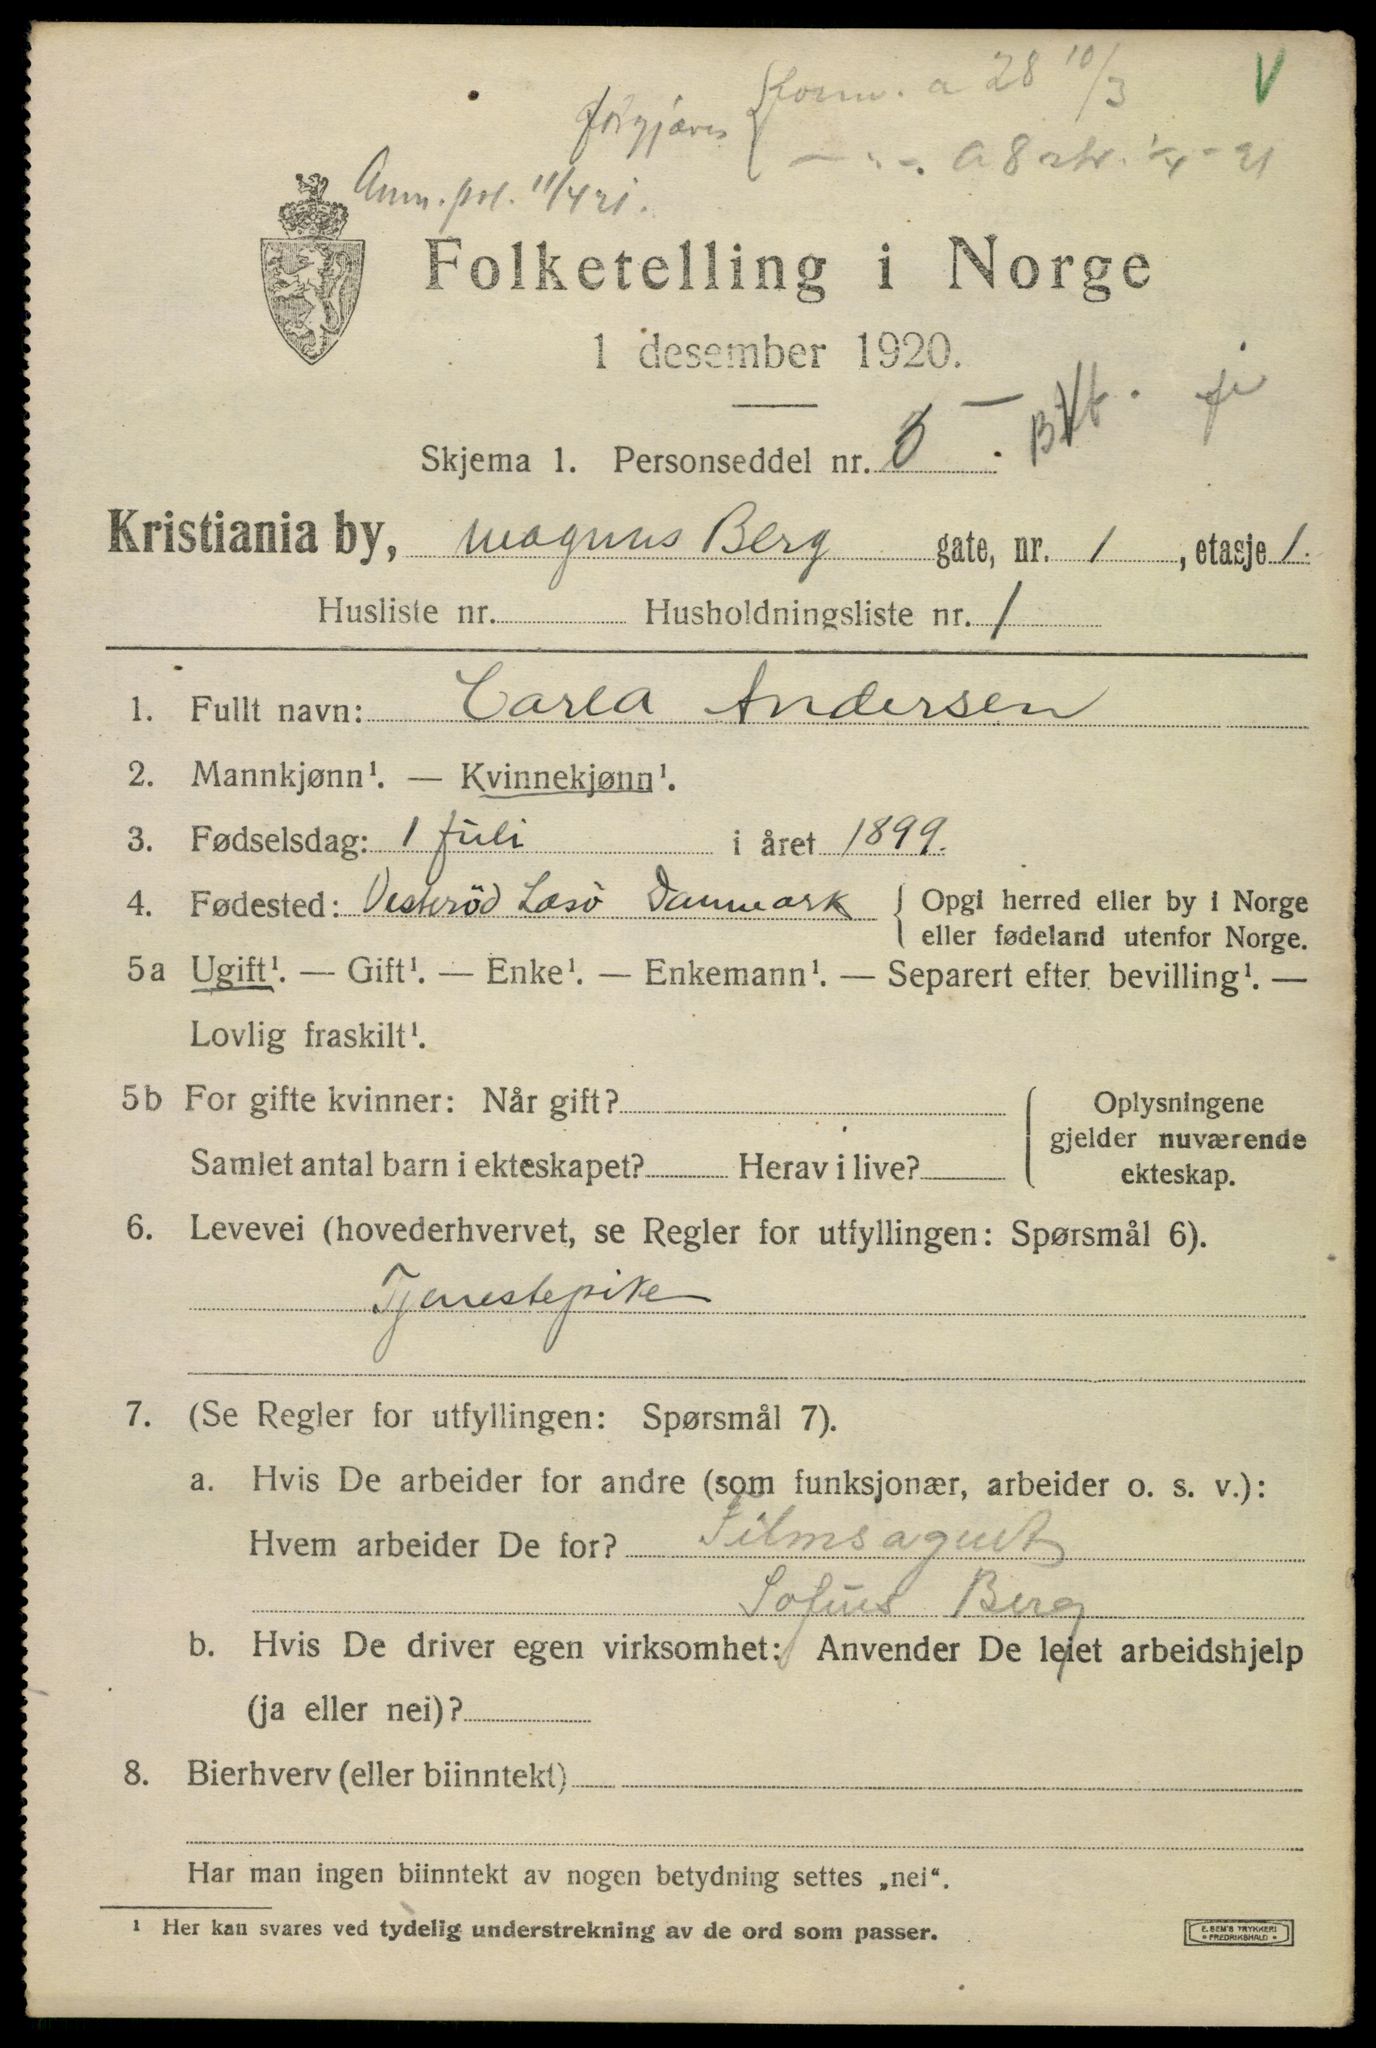 forgjæves { form. a 28 10/3
a 8 str. 1/4 - 21
V
Ann. pol. 11/4 21.
Folketelling i Norge
1 desember 1920.
Skjema 1. Personseddel nr. 3
Kristiania by, Magnus Berg gate, nr. 1, etasje 1.
Husliste nr. Husholdningsliste nr. 1
1. Fullt navn: Carla Andersen
2. Mannkjønn¹. — Kvinnekjønn¹.
3. Fødselsdag: 1 juli i året 1899.
4. Fødested: Vesterød Læsø Danmark { Opgi herred eller by i Norge
eller fødeland utenfor Norge.
5a Ugift¹. — Gift¹. — Enke¹. — Enkemann¹. — Separert efter bevilling¹. —
Lovlig fraskilt¹.
5b For gifte kvinner: Når gift?
Samlet antal barn i ekteskapet? Herav i live?
{ Oplysningene
gjelder nuværende
ekteskap.
6. Levevei (hovederhvervet, se Regler for utfyllingen: Spørsmål 6).
Tjenestepike
7. (Se Regler for utfyllingen: Spørsmål 7).
a. Hvis De arbeider for andre (som funksjonær, arbeider o. s. v.):
Hvem arbeider De for? Filmsagent
Sofus Berg
b. Hvis De driver egen virksomhet: Anvender De leiet arbeidshjelp
(ja eller nei)?
8. Bierhverv (eller biinntekt)
Har man ingen biinntekt av nogen betydning settes „nei“.
¹ Her kan svares ved tydelig understrekning av de ord som passer.
E. SEM'S TRYKKERI
FREDRIKSHALD